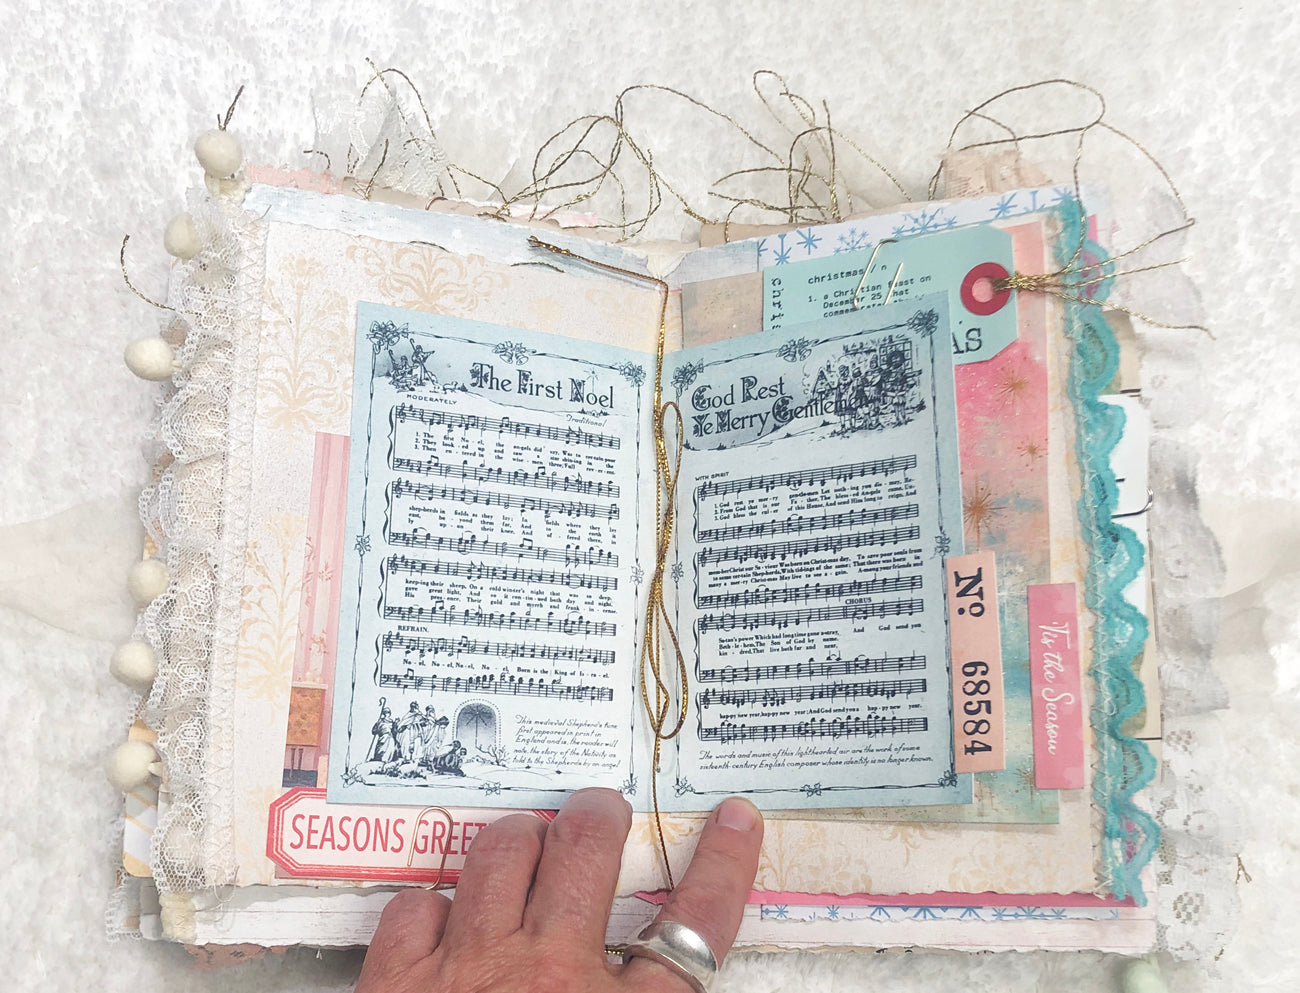 The First Noel
MODERATELY
Traditional
1. The first No - el, the an-gels did say, Was to cer-tain poor
2. They look - ed up and saw a star shin-ing in the
3. Then en - tered in the wise - men three, Full rev er - ent-
shep-herds in fields as they lay; In fields where they lay
east, be - yond them far, And to the earth it
ly up - on their knee, And of - fered there, in
keep-ing their sheep, On a cold winter's night that was so deep.
gave great light, And so it con-tin-ued both day and night.
His pres - ence, Their gold and myrrh and frank - in - cense.
REFRAIN.
No - el, No - el, No-el, No - el, Born is the King of Is - ra - el.
This medieval Shepherd's tune
first appeared in print in
England and is, the reader will
note, the story of the Nativity as
told to the Shepherds by an angel
SEASONS GREET
christmas / n
1. a Christian feast on
December 25 that
chris
AS
God Rest
Ye Merry Gentlemen
WITH SPIRIT
1. God rest ye mer - ry gen-tle-men Let noth-ing you dis - may, Re-
2. From God that is our Fa - ther, The bless-ed An-gels came, Un-
3. God bless the rul - er of this House, And send Him long to reign, And
mem-ber Christ our Sa - viour Was born on Christ-mas day, To save poor souls from
to some cer-tain Shep-herds, With tid-ings of the same; That there was born in
many a mer-ry Christ-mas May live to see a - gain. Among your friends and
CHORUS
Sa-tan's power Which had long time gone a-stray, And God send you
Beth - le - hem, The Son of God by name.
kin - dred, That live both far and near,
hap-py new year, hap-py new year; And God send you a hap - py new year.
The words and music of this lighthearted air are the work of some
sixteenth-century English composer whose identity is no longer known.
No 68584
'Tis the Season